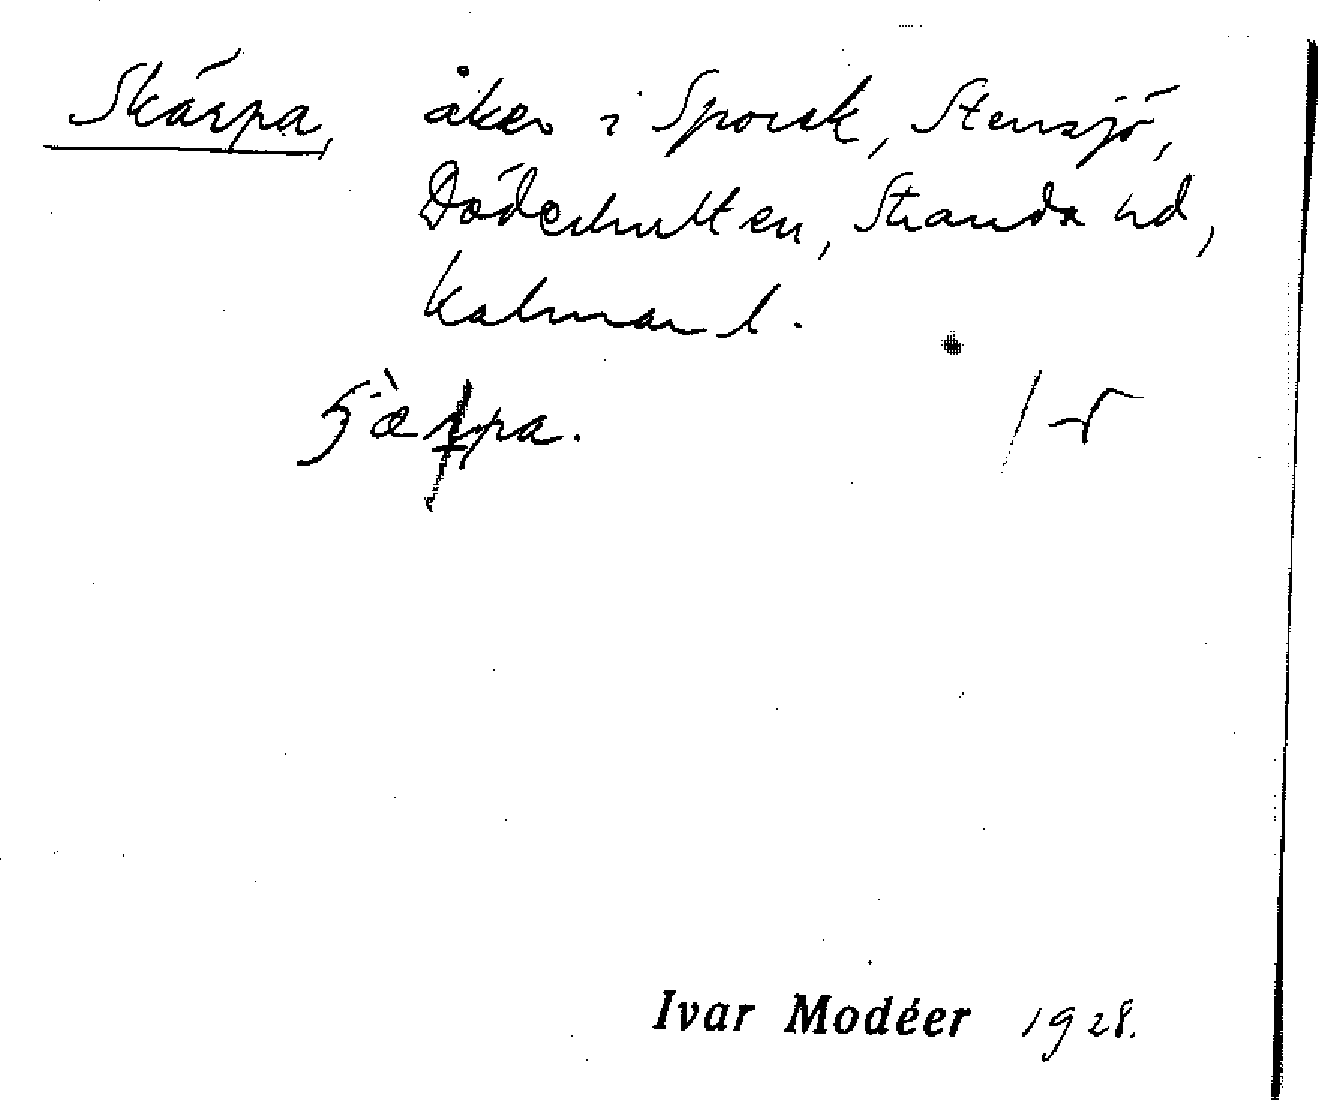 Skärpa, åker i Sporsk, Stensjö,
Döderhulten, Stranda hd,
Kalmar l.
Ivar Modéer 1928.